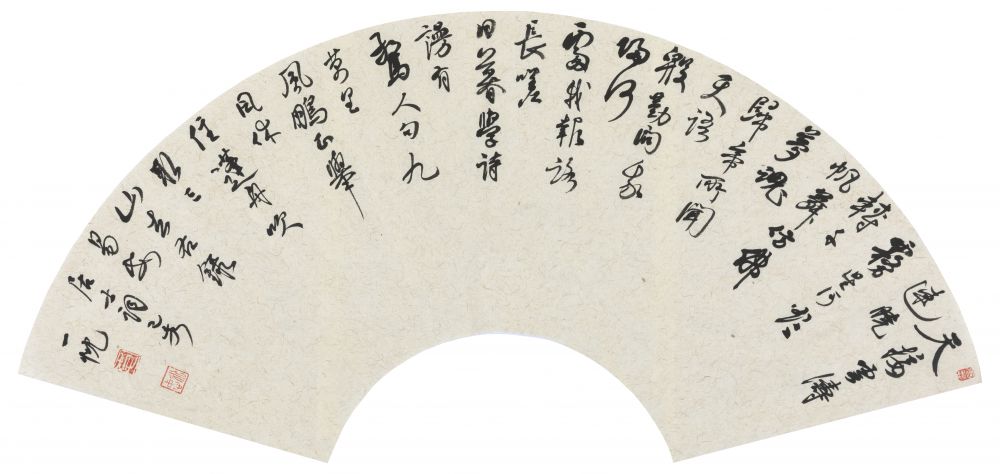 天接雲濤
連曉
霧星河欲
轉千
帆舞
夢魂仿佛
歸帝所聞
天語
殷勤問我
歸何
處我報路
長嗟
日暮學詩
謾有
驚人句九
萬里
風鵬正舉
風休
住蓬舟吹
取三
山去右錄
易安
居士詞己亥
一忱